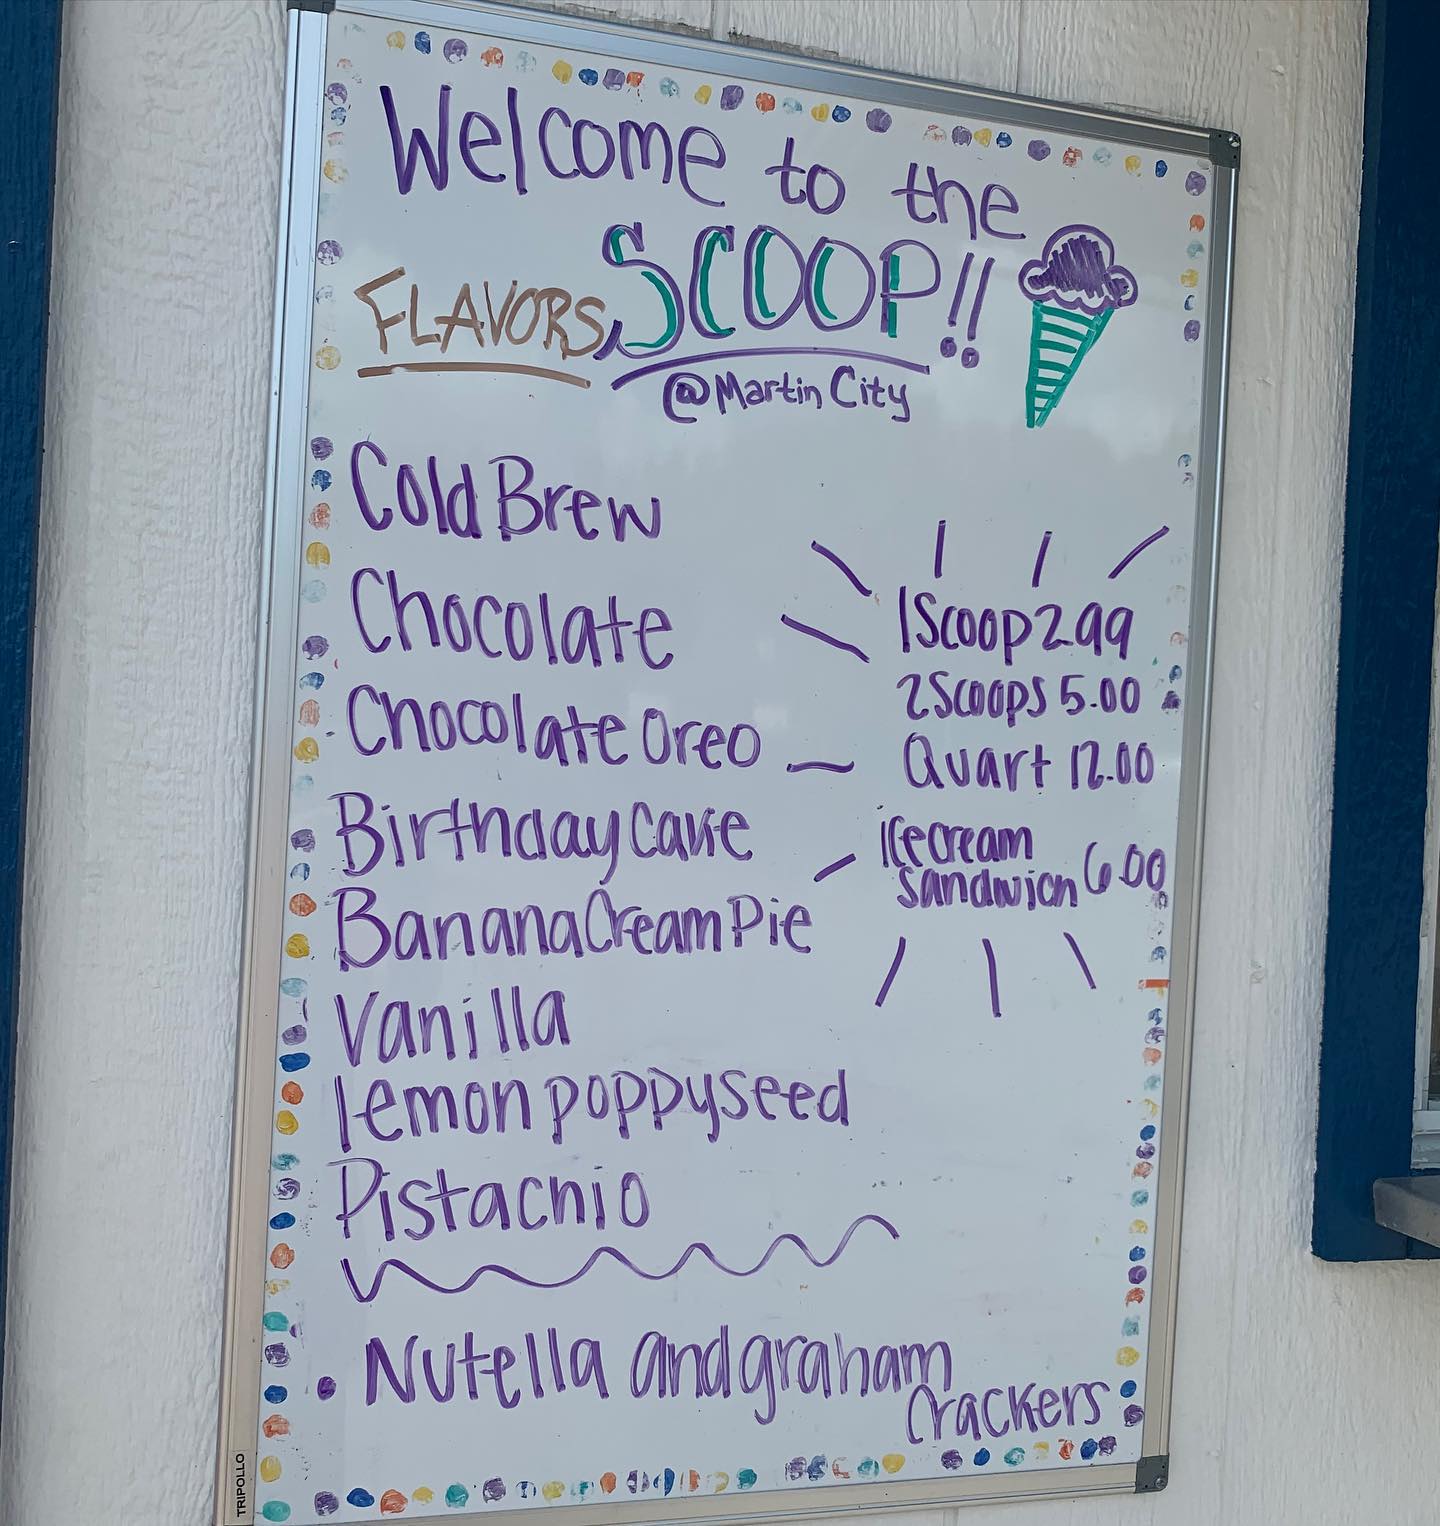 Welcome to the
SCOOP!!
FLAVORS
@Martin City
Cold Brew
Chocolate
Chocolate Oreo
Birthday Cake
Banana Cream Pie
Vanilla
lemon poppyseed
Pistachio
1 Scoop 2.99
2 Scoops 5.00
Quart 12.00
Ice cream
sandwich 6.00
• Nutella and graham
crackers
TRIPOLLO